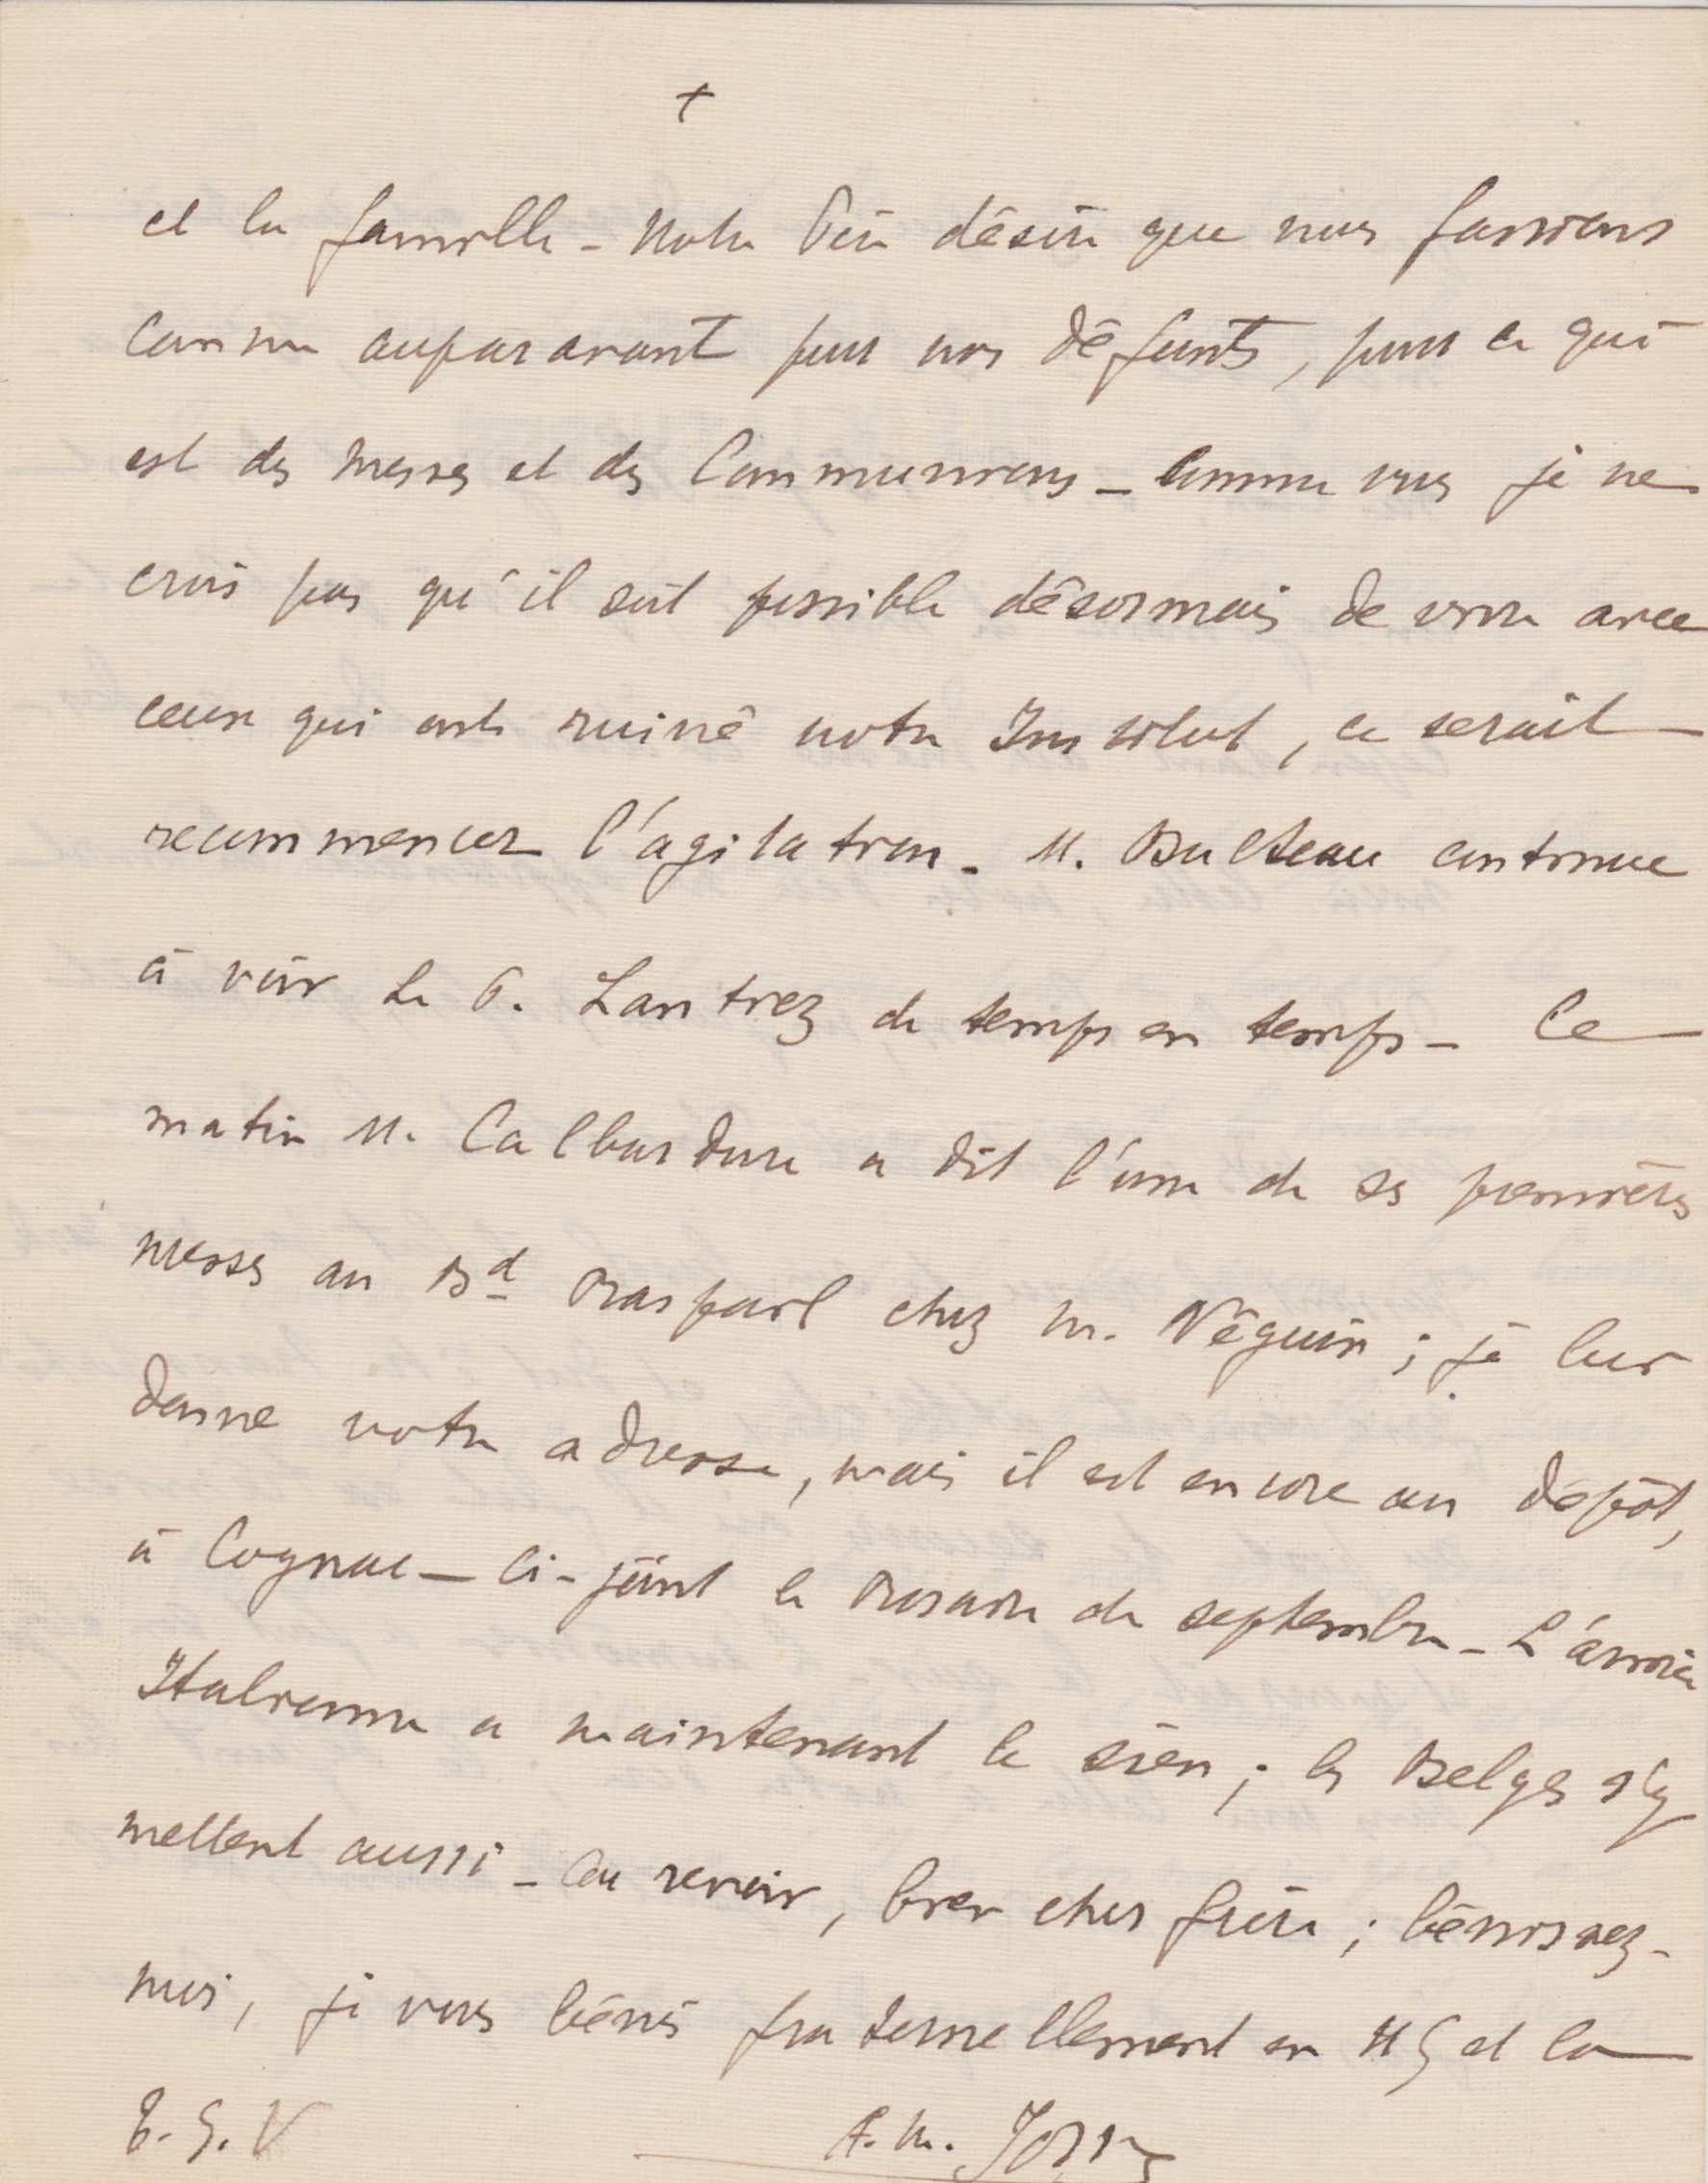 +
et la famille - Notre Père désire que nous fassions
comme auparavant pour nos défunts, pour ce qui
est des messes et des Communions - Comme vous je ne
crois pas qu'il soit possible désormais de vivre avec
ceux qui ont ruiné notre Institut, ce serait
recommencer l'agitation - M. Bulteau continue
à voir le P. Lantrez de temps en temps - Ce
matin M. Calbardure a dit l'une de ses premières
messes au Bd Raspail chez M. Véguin ; je leur
donne votre adresse, mais il est encore au dépôt,
à Cognac - Ci-joint le Rosaire de septembre - L'armée
Italienne a maintenant le sien ; les Belges s'y
mettent aussi - Au revoir, bien cher frère ; bénissez-
moi, je vous bénis fraternellement en NS et la
T. S. V
A. M.